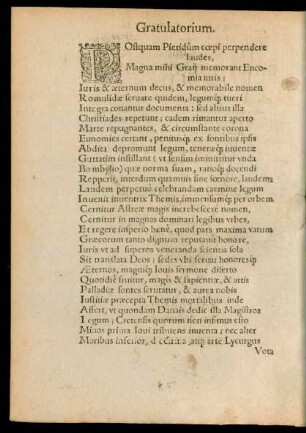 Gratulatorium.
POstquam Pieridũm cœpi perpendere
laudes,
Magna mihi Graij memorant Enco-
mia iuris;
Iuris & æternum decus, & memorabile nomen
Romulidæ seruate quidem, legumq; turri
Integra constant documenta: sed altius illa
Christiades repetunt; cadem rimantur aperto
Marte repugnantes, & circumstante corona
Eunomies certant, penitusq; ex fontibus ipsis
Abdita depromunt legum, teneraq; iuuentæ
Guttatim instillant (vt sensim immittitur vnda
Bombylio) quæ norma fuam, ratioq; docendi
Repperit, interdum quantum sine fœnore, laudem
Laudem perpetuò celebrandam carmine legum
Inuenit inuentrix Themis, immensumq; per orbem
Cernitur Astreæ magis increbescere nomen,
Cernitur in magnas dominari legibus vrbes,
Et regere imperio benè, quod pars maxima vatum
Græcorum tanto dignum reputauit honore,
Iuris vt ad superos veneranda scientia sola
Sit translata Deos; sedes vbi seruit honoresq;
Æternos, magniq; Iouis sermone diserto
Quotidiè fruitur, magis & sapientiæ, & artis
Palladeæ fontes scrutatur, & aurea nobis
Iustitiæ præcepta Themis mortalibus inde
Affert, vt quondam Danais dedit illa Magistros
Legum; Cretensis quorum non infimus esto
Minos prima Ioui tribuens inuenta; nec alter
Moribus inferior, atq; arte Lycurgus
Vota